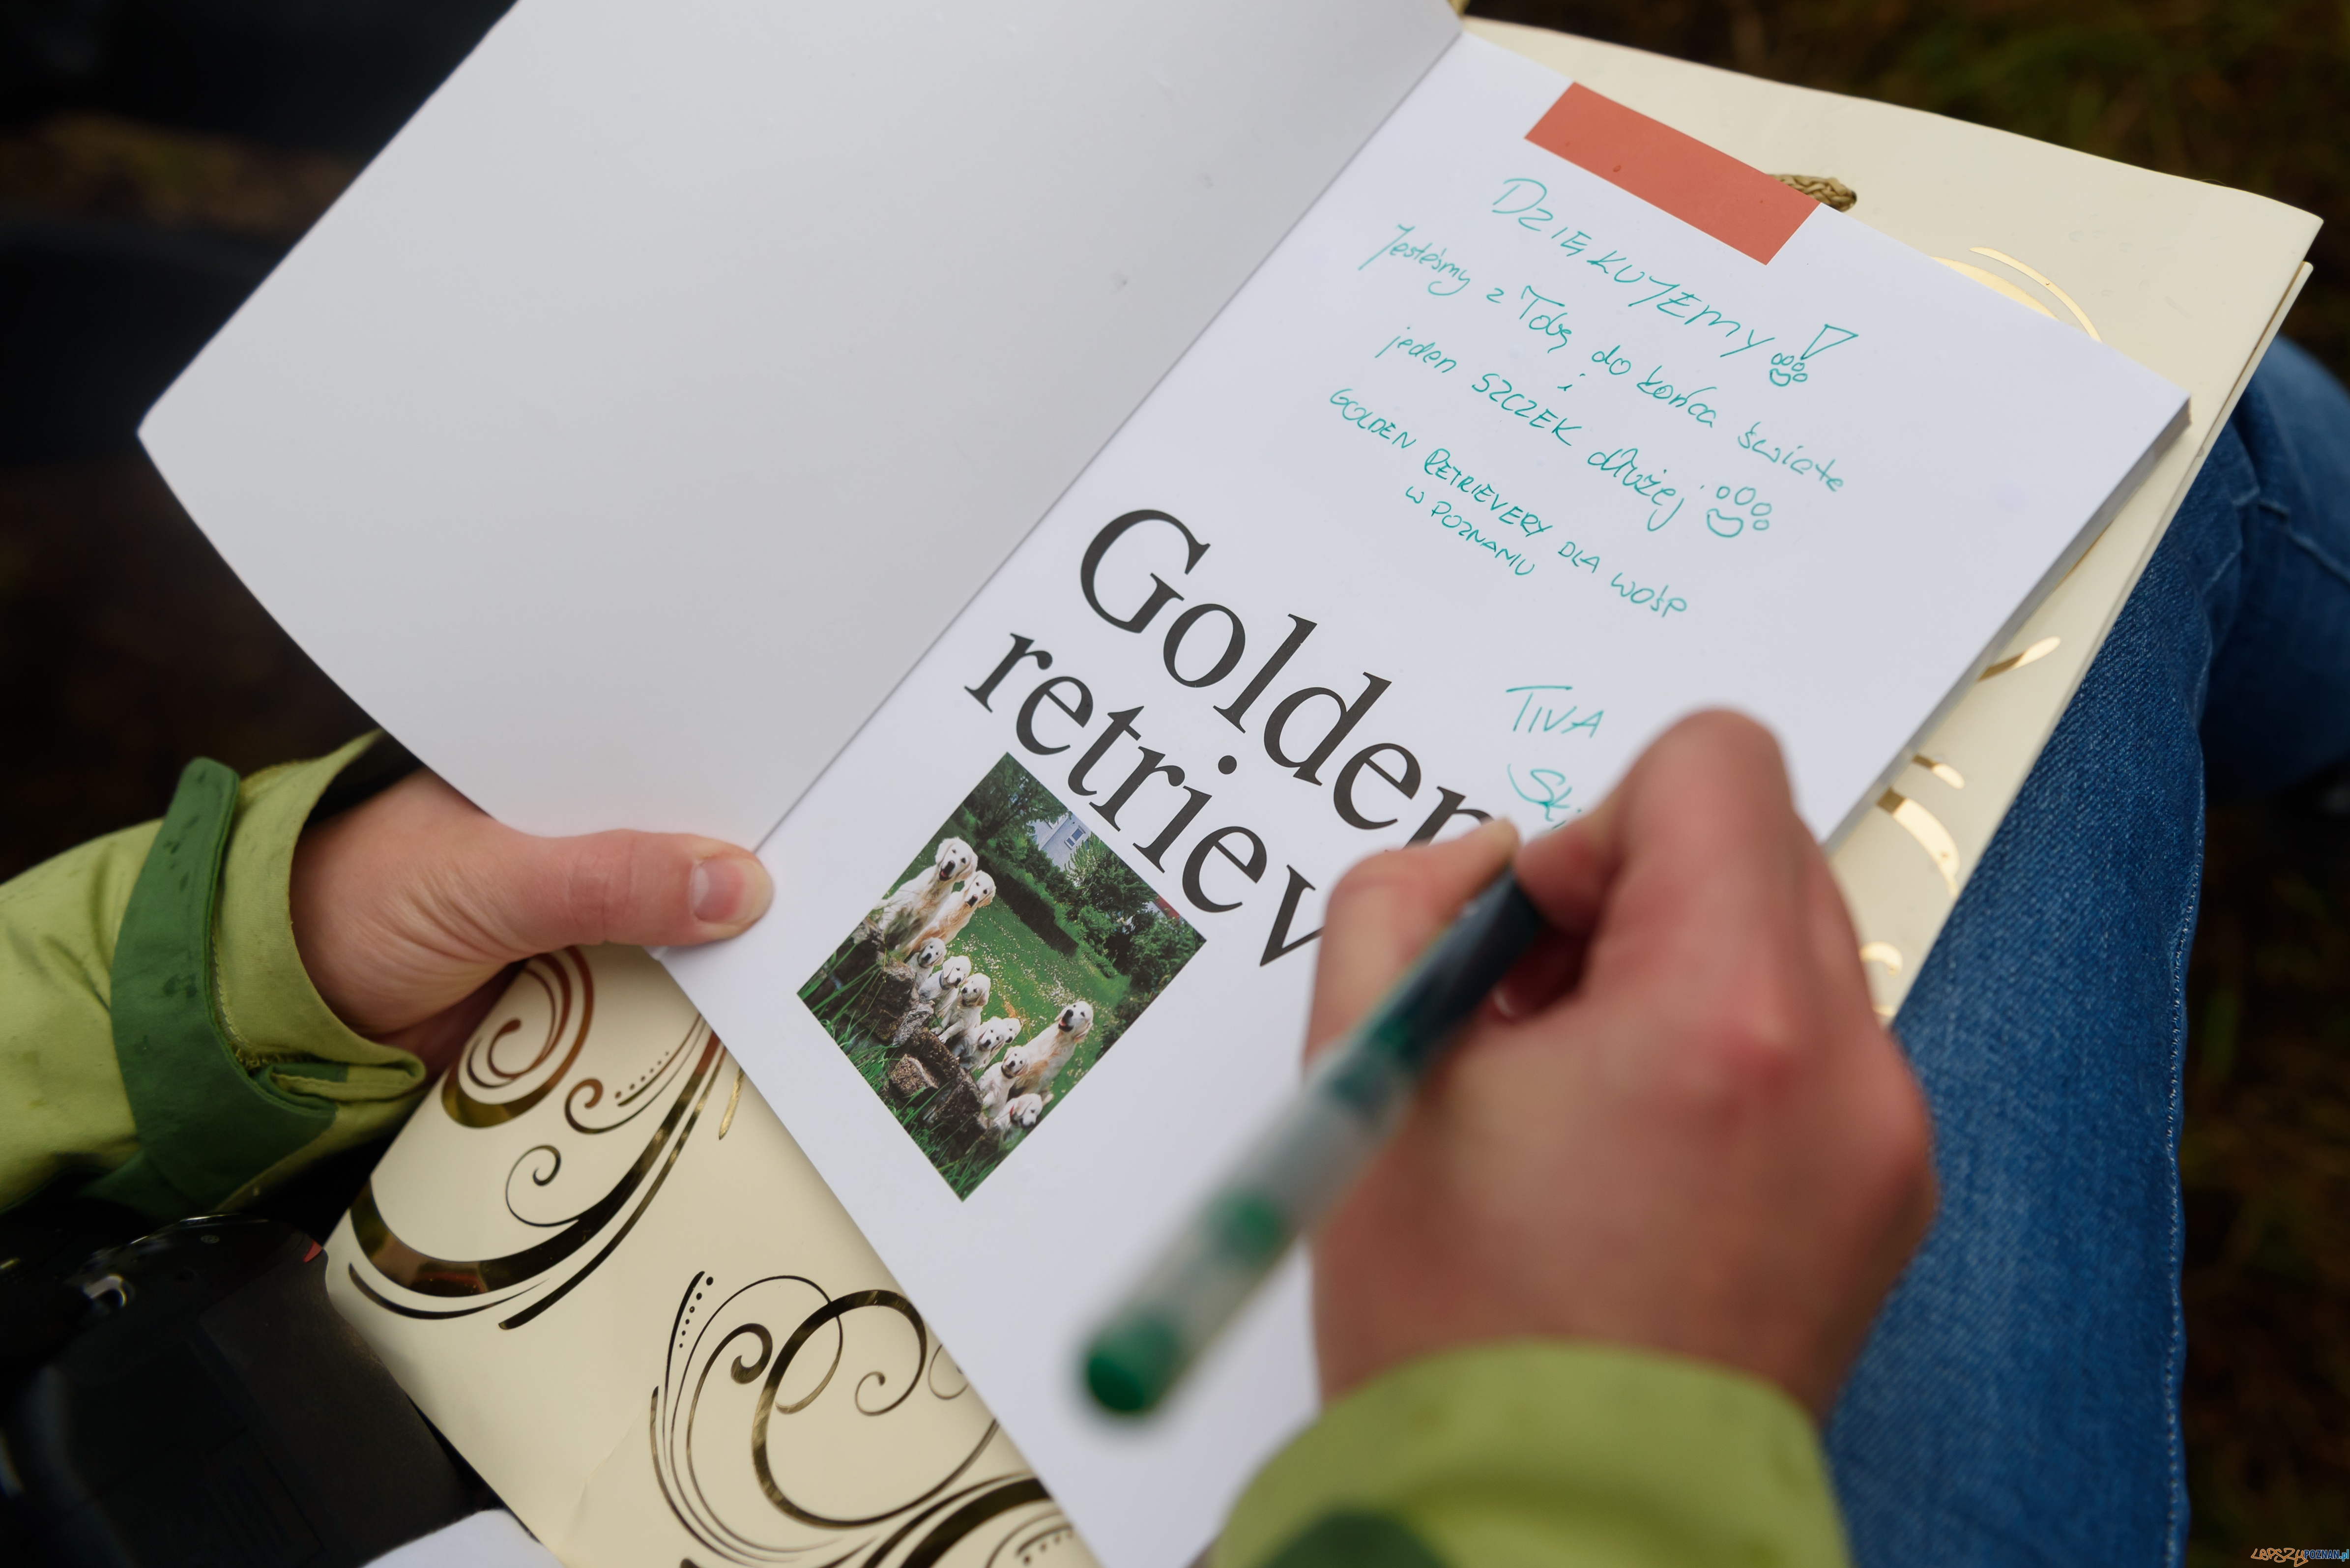 DZIĘKUJEMY!
Jesteśmy z Tobą do końca świata
i
jeden SZCZEK dłużej
GOLDEN RETRIEVERY DLA WOŚP
W POZNANIU
TIVA
Ski
Golden
retriev
LEPSZYPOZNAN.pl